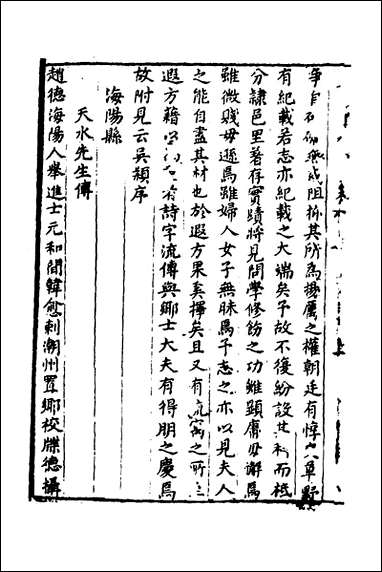 爭自砥礪無或阻折其所為揚厲之權朝廷有惇
有紀載若志亦紀載之大端矣予故不復紛設其科而祗
分隷邑里著存實蹟將見問學修飭之功雖顕膚毋辭焉
雖微賤毋遜焉雖婦人女子無昧焉千志之亦以見夫人
之能自盡其材也於遐方果奚擇矣且又有流寓之所
遐方藉以詩字流傳與鄉士大夫有得朋之慶焉
故附見云吳穎序
海陽縣
天水先生傳
趙德海陽人舉進士元和間韓愈刺潮州置鄉校牒德攝